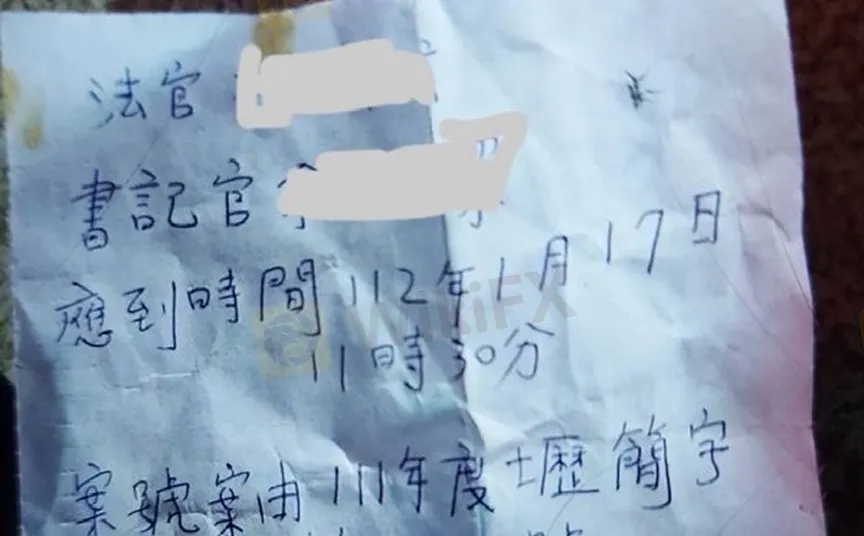 法官
書記官
應到時間112年1月17日
11時30分
案號案由111年度壢簡字
WikiFX